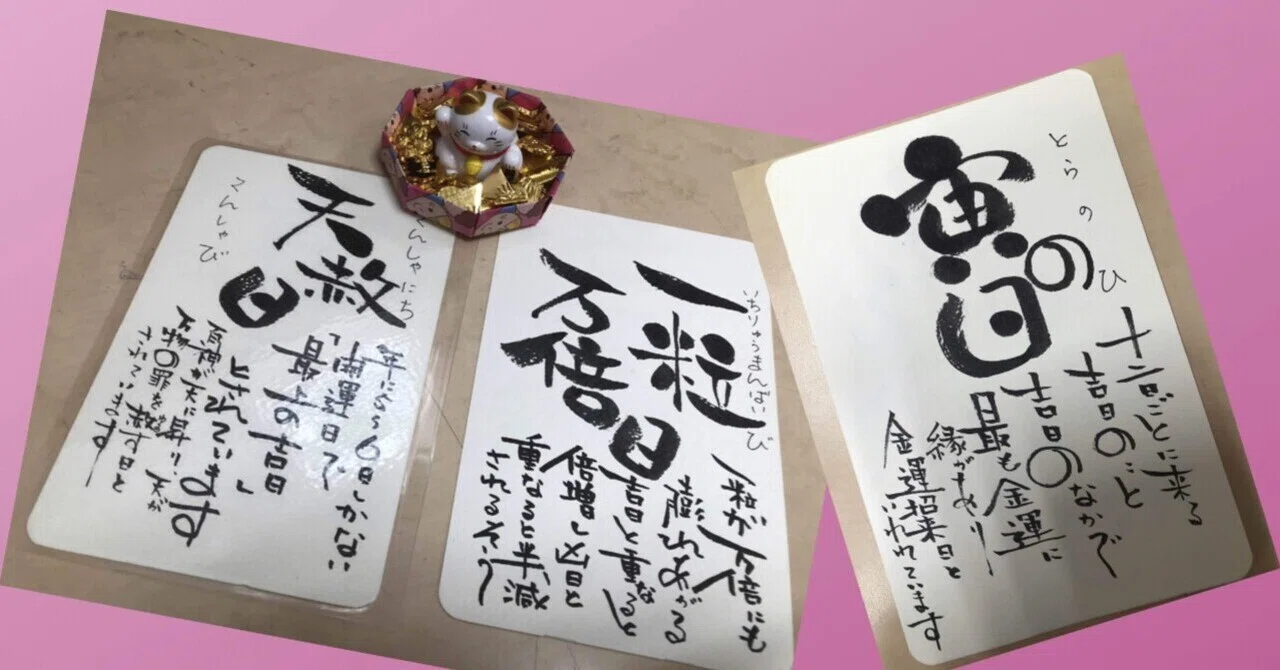 てんしゃにち
天赦
日
てんしゃび
年に5〜6日しかない
「開運日で
最上の吉日
とされています」
百神が天に昇り、天が
万物の罪を赦す日と
されています
いちりゅうまんばいび
一粒
万倍
日
一粒が万倍にも
膨れあがる
吉日と重なると
倍増し凶日と
重なると半減
されるそう
とらのひ
寅の日
十二日ごとに来る
吉日のこと
吉日のなかで
最も金運に
縁があり
金運招来日と
いわれています